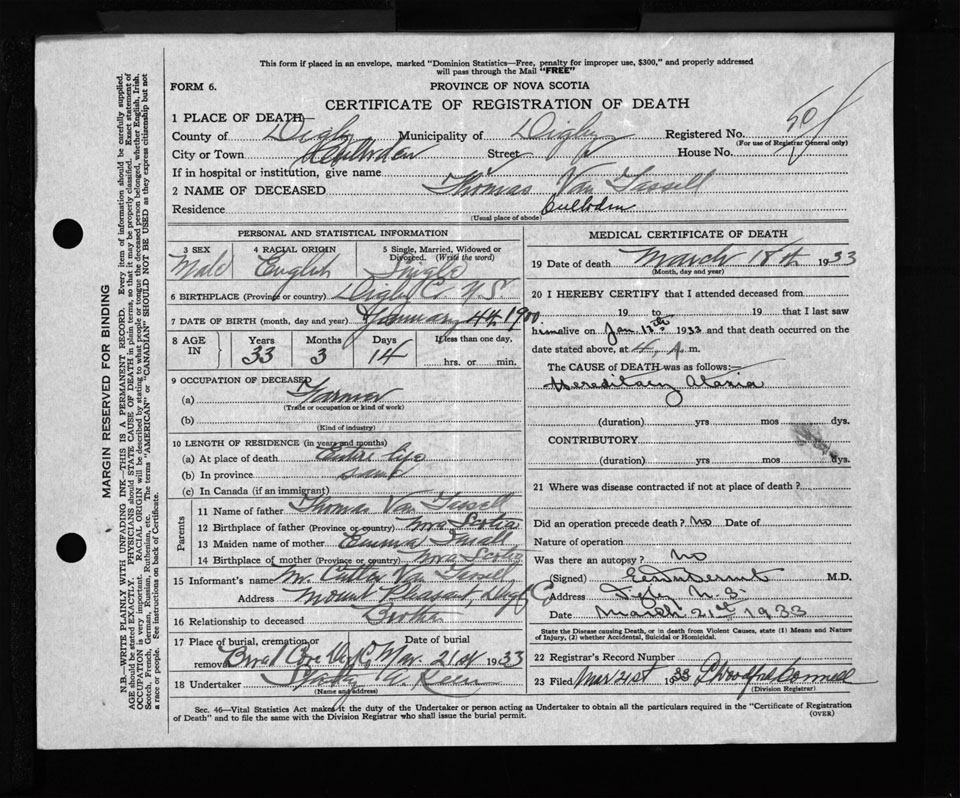 This form if placed in an envelope, marked "Dominion Statistics—Free, penalty for improper use, $300," and properly addressed
will pass through the Mail "FREE"
FORM 6.
PROVINCE OF NOVA SCOTIA
CERTIFICATE OF REGISTRATION OF DEATH
1 PLACE OF DEATH—
County of Digby Municipality of Digby Registered No.
(For use of Registrar General only)
City or Town Culloden Street House No.
If in hospital or institution, give name
2 NAME OF DECEASED Thomas Van Tassell
Residence Culloden
(Usual place of abode)
PERSONAL AND STATISTICAL INFORMATION
3 SEX 4 RACIAL ORIGIN 5 Single, Married, Widowed or Divorced. (Write the word)
Male English Single
6 BIRTHPLACE (Province or country) Digby Co. N.S.
7 DATE OF BIRTH (month, day and year) January 4th 1900
8 AGE IN Years Months Days If less than one day,
33 3 14 hrs. or min.
9 OCCUPATION OF DECEASED
(a) Farmer
(Trade or occupation or kind of work)
(b)
(Kind of industry)
10 LENGTH OF RESIDENCE (in years and months)
(a) At place of death Entire life
(b) In province same
(c) In Canada (if an immigrant)
Parents
11 Name of father Thomas Van Tassell
12 Birthplace of father (Province or country) Nova Scotia
13 Maiden name of mother Emma
14 Birthplace of mother (Province or country) Nova Scotia
15 Informant's name Mr. Van Tassell
Address Mount Pleasant, Digby Co
16 Relationship to deceased Brother
17 Place of burial, cremation or removal Date of burial
Mar 21st 1933
18 Undertaker
(Name and address)
MEDICAL CERTIFICATE OF DEATH
19 Date of death March 18th 1933
(Month, day and year)
20 I HEREBY CERTIFY that I attended deceased from
19 to 19 that I last saw
him alive on Jan. 12th 1933 and that death occurred on
date stated above, at 4 A. m.
The CAUSE of DEATH was as follows:—
Hereditary Ataxia
(duration) yrs mos dys.
CONTRIBUTORY
(duration) yrs mos dys.
21 Where was disease contracted if not at place of death?
Did an operation precede death? no Date of
Nature of operation
Was there an autopsy? no
(Signed) M.D.
Address Digby N.S.
Date March 21st 1933
State the Disease causing Death, or in death from Violent Causes, state (1) Means and Nature
of Injury, (2) whether Accidental, Suicidal or Homicidal.
22 Registrar's Record Number
23 Filed Mar 21st 1933
(Division Registrar)
Sec. 46—Vital Statistics Act makes it the duty of the Undertaker or person acting as Undertaker to obtain all the particulars required in the "Certificate of Registration
of Death" and to file the same with the Division Registrar who shall issue the burial permit.
(OVER)
MARGIN RESERVED FOR BINDING
N.B.—WRITE PLAINLY WITH UNFADING INK—THIS IS A PERMANENT RECORD. Every item of information should be carefully supplied.
AGE should be stated EXACTLY. PHYSICIANS should STATE CAUSE OF DEATH in plain terms, so that it may be properly classified. Exact statement of
OCCUPATION is very important. RACIAL ORIGIN will be described by stating to what people or tongue the deceased person belonged, whether English, Irish,
Scotch, French, German, Russian, Ruthenian, etc. The terms "AMERICAN" or "CANADIAN" SHOULD NOT BE USED as they express citizenship but not
a race or people. See instructions on back of Certificate.